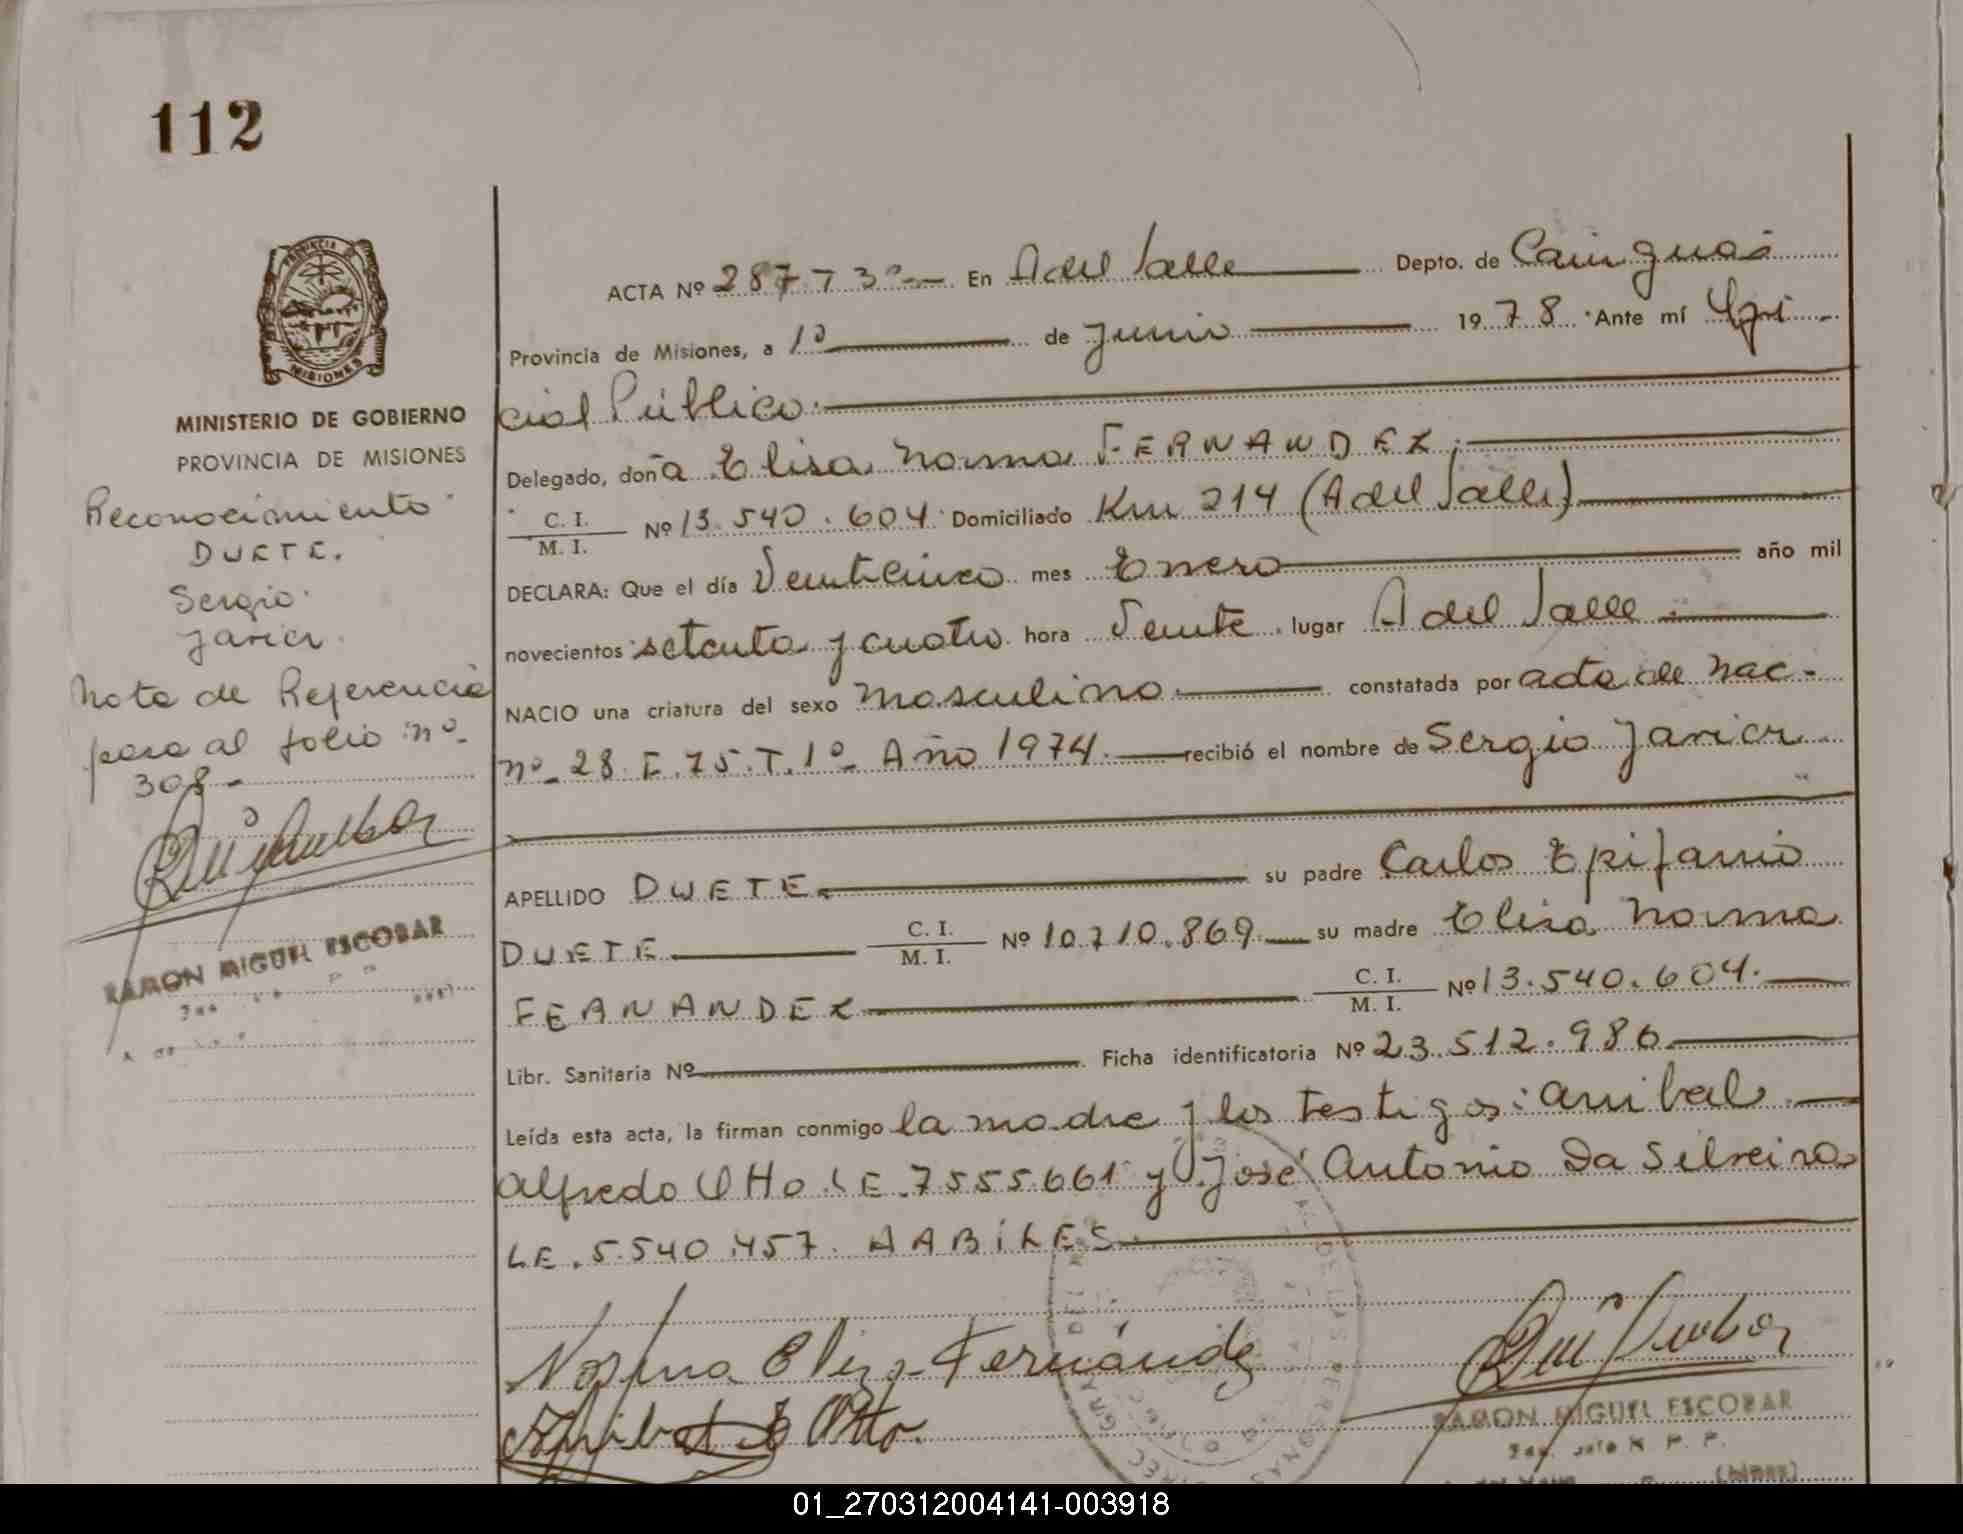 112
MINISTERIO DE GOBIERNO
PROVINCIA DE MISIONES
Reconocimiento
DUETE.
Sergio
Javier.
Nota de Referencia
pasa al folio nº
308-
RAMON MIGUEL ESCOBAR
ACTA Nº 287 T 3º En A del Valle Depto. de Cainguás
Provincia de Misiones, a 1º de Junio 1978. Ante mí Ofi
cial Público.
Delegado, doña Elisa Norma FERNANDEZ,
C. I. / M. I. Nº 13.540.604 Domiciliado Km 214 (A del Valle)
DECLARA: Que el día Veinticinco mes Enero año mil
novecientos setenta y cuatro hora Veinte lugar A del Valle.
NACIO una criatura del sexo masculino constatada por acta de nac.
nº 28 F. 15. T. 1º Año 1974. recibió el nombre de Sergio Javier
APELLIDO DUETE. su padre Carlos Epifanio
DUETE C. I. / M. I. Nº 10.710.869. su madre Elisa Norma
FERNANDEZ C. I. / M. I. Nº 13.540.604.
Libr. Sanitaria Nº Ficha identificatoria Nº 23.512.986
Leída esta acta, la firman conmigo la madre y los testigos: Anibal
Alfredo OTTo. LE. 7555661 y José Antonio Da Silveira
LE. 5.540.457. HABiLES
Norma Eliza Fernández
Anibal A Otto.
RAMON MIGUEL ESCOBAR
01_270312004141-003918